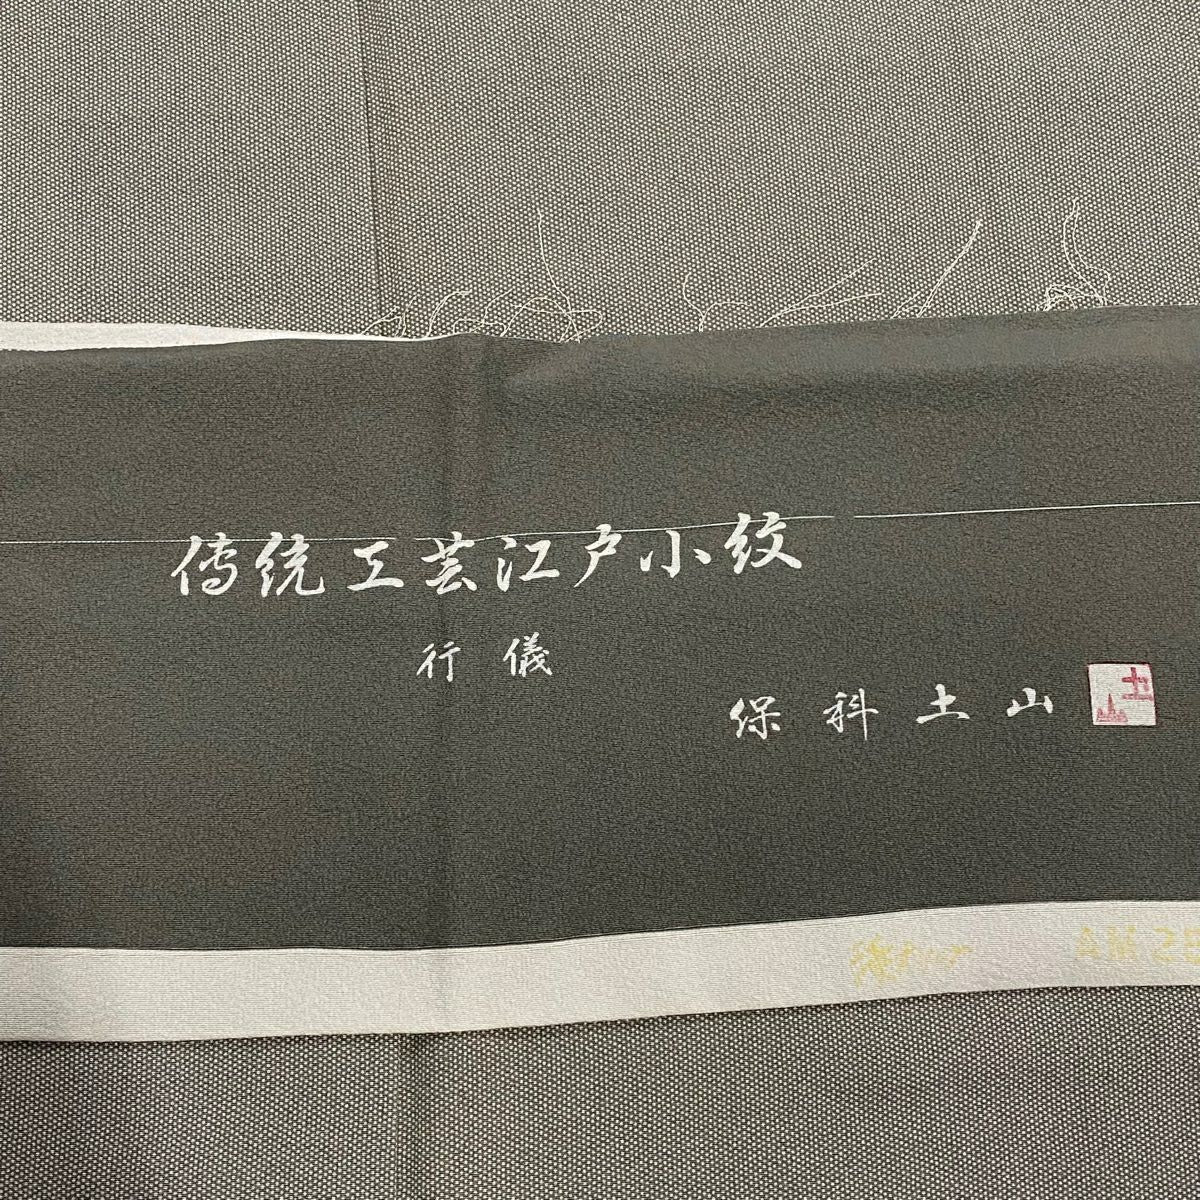 伝統工芸江戸小紋
行儀
保科土山
土山
AM 2B